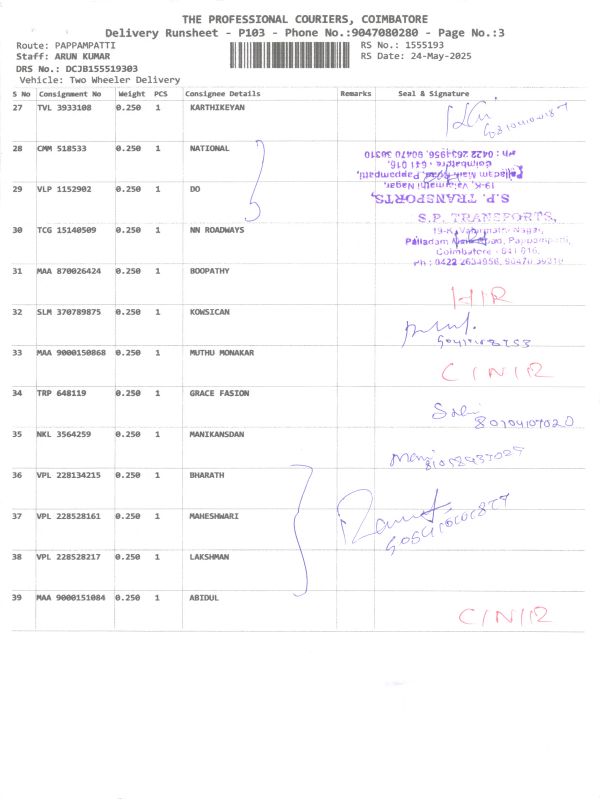 THE PROFESSIONAL COURIERS, COIMBATORE
Delivery Runsheet - P103 - Phone No.:9047080280 - Page No.:3
Route: PAPPAMPATTI RS No.: 1555193
Staff: ARUN KUMAR RS Date: 24-May-2025
DRS No.: DCJB155519303
Vehicle: Two Wheeler Delivery
S No Consignment No Weight PCS Consignee Details Remarks Seal & Signature
27 TVL 3933108 0.250 1 KARTHIKEYAN
28 CMM 518533 0.250 1 NATIONAL
Ph : 0422 2634956, 90470 36310
Coimbatore - 641 016.
Palladam Main Road, Pappampatti,
19-K, Vajramathi Nagar,
S.P. TRANSPORTS,
29 VLP 1152902 0.250 1 DO
S.P. TRANSPORTS,
30 TCG 15140509 0.250 1 NN ROADWAYS
Palladam Main Road, Pappampatti,
Coimbatore - 641 016.
31 MAA 870026424 0.250 1 BOOPATHY
H/R
32 SLM 370789875 0.250 1 KOWSICAN
33 MAA 9000150868 0.250 1 MUTHU MONAKAR
C/N/R
34 TRP 648119 0.250 1 GRACE FASION
8070407020
35 NKL 3564259 0.250 1 MANIKANSDAN
Mani
36 VPL 228134215 0.250 1 BHARATH
37 VPL 228528161 0.250 1 MAHESHWARI
38 VPL 228528217 0.250 1 LAKSHMAN
39 MAA 9000151084 0.250 1 ABIDUL
C/N/R